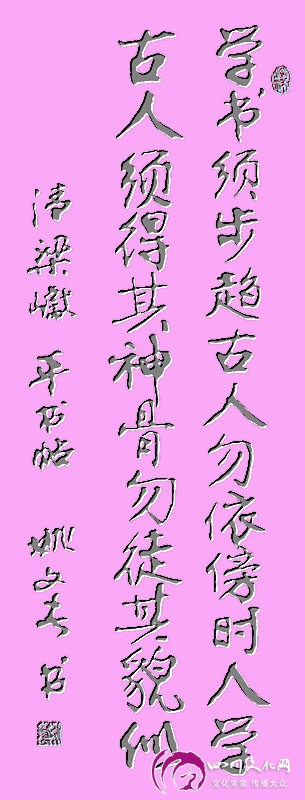 学书须步趋古人勿依傍时人学
古人须得其神骨勿徒其貌似
清梁巘 平书帖 姚文春 书
四川文化网
文化求索 传播大众